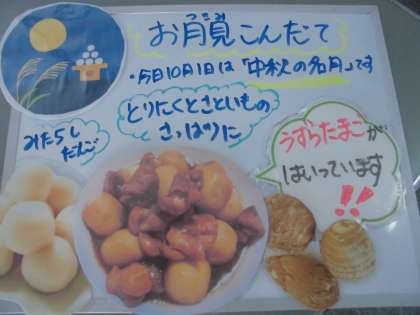 お月見こんだて
つきみ
・今日10月1日は「中秋の名月」です
とりにくとさといもの
さっぱりに
みたらし
だんご
うずらたまごが
はいっています
!!